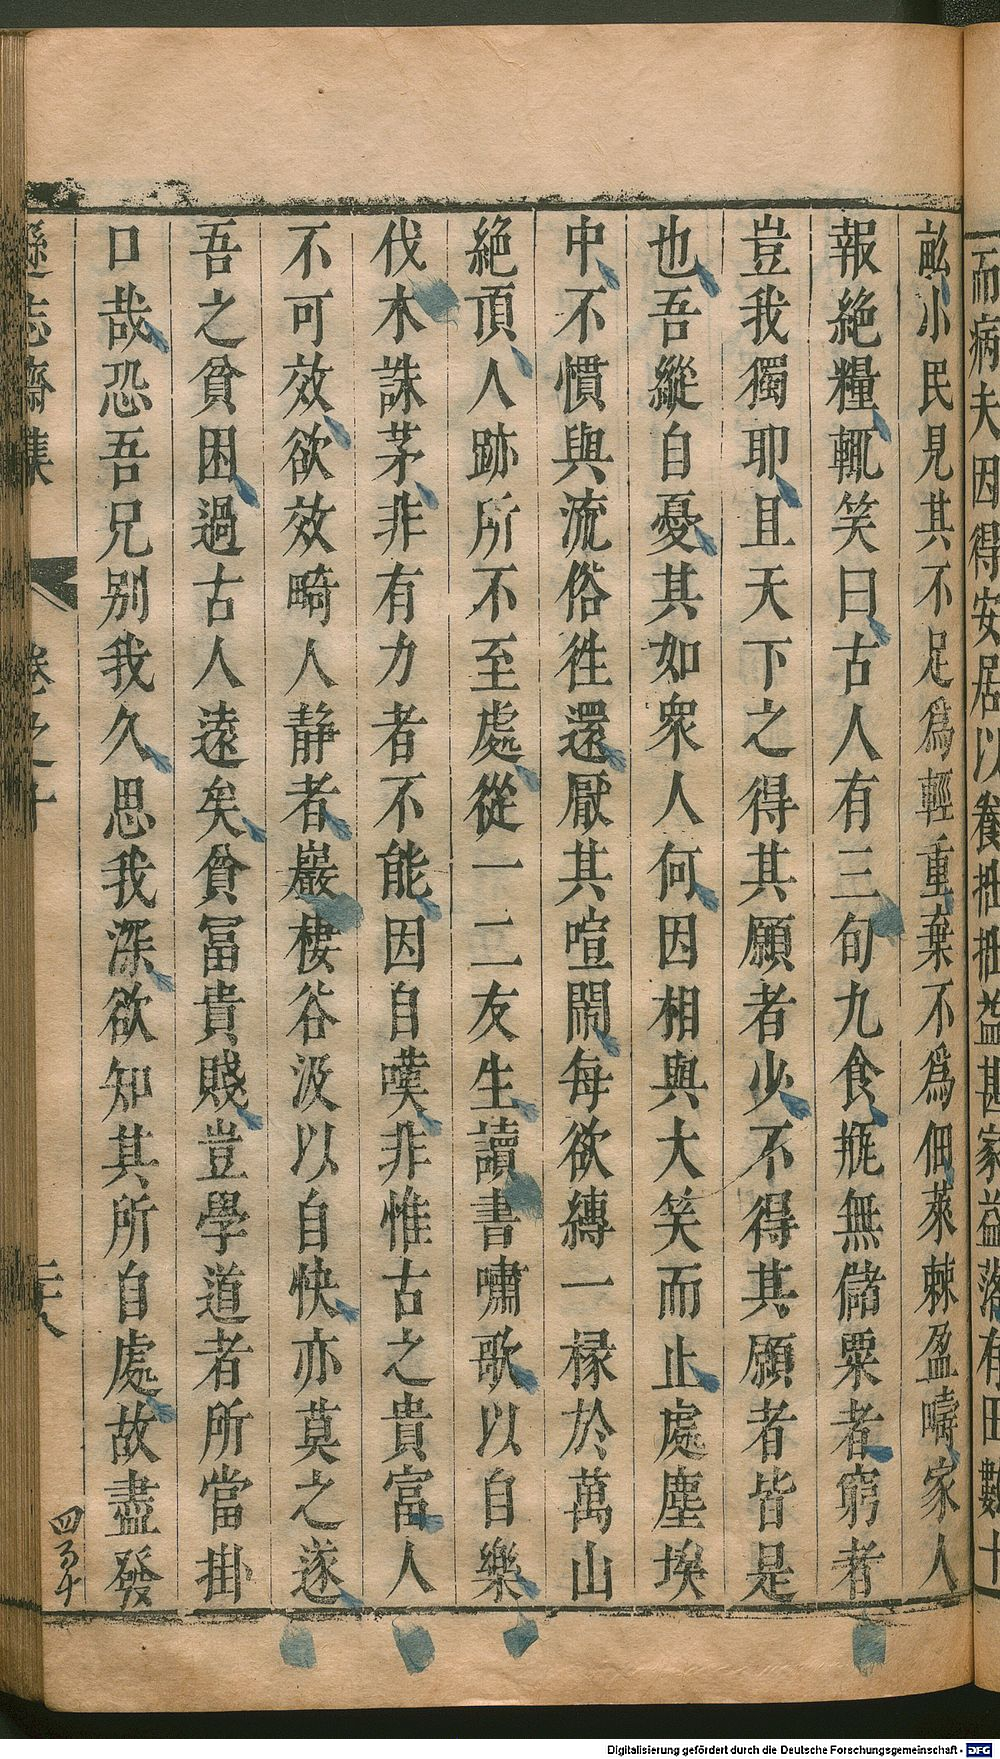 而病夫因得安居以養拙拙益甚家益落有田數十
畝小民見其不足為輕重棄不為佃萊棘盈疇家人
報絶糧輒笑曰古人有三旬九食瓶無儲粟者窮者
豈我獨耶且天下之得其願者少不得其願者皆是
也吾縱自憂其如衆人何因相與大笑而止處塵埃
中不慣與流俗徃還厭其喧鬧每欲縛一椽於萬山
絶頂人跡所不至處從一二友生讀書嘯歌以自樂
伐木誅茅非有力者不能因自嘆非惟古之貴富人
不可效欲效畸人静者巖棲谷汲以自快亦莫之遂
吾之貧困過古人遠矣貧冨貴賤豈學道者所當掛
口哉恐吾兄别我久思我深欲知其所自處故盡發
遜志齋集
卷之十
二十八
四百十
Digitalisierung gefördert durch die Deutsche Forschungsgemeinschaft - DFG